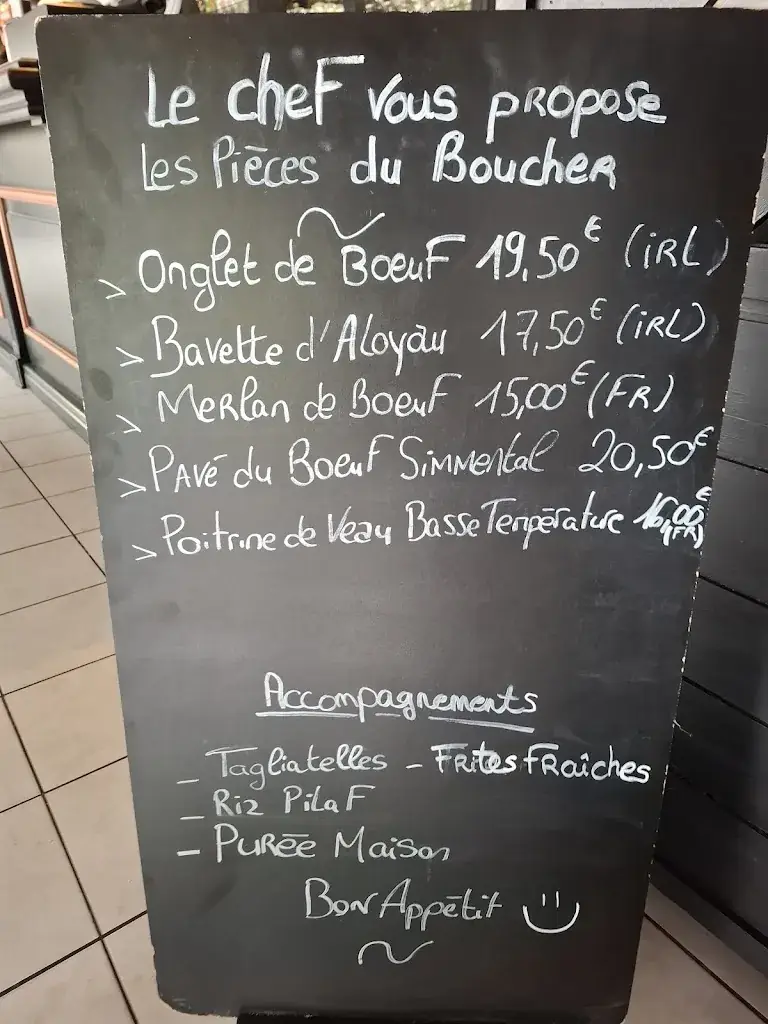 Le chef vous propose
Les Pièces du Boucher
> Onglet de Boeuf 19,50€ (iRL)
> Bavette d'Aloyau 17,50€ (iRL)
> Merlan de Boeuf 15,00€ (FR)
> Pavé du Boeuf Simmental 20,50€
> Poitrine de Veau Basse Température 16,00€ (FR)
Accompagnements
- Tagliatelles - Frites Fraîches
- Riz Pilaf
- Purée Maison
Bon Appétit